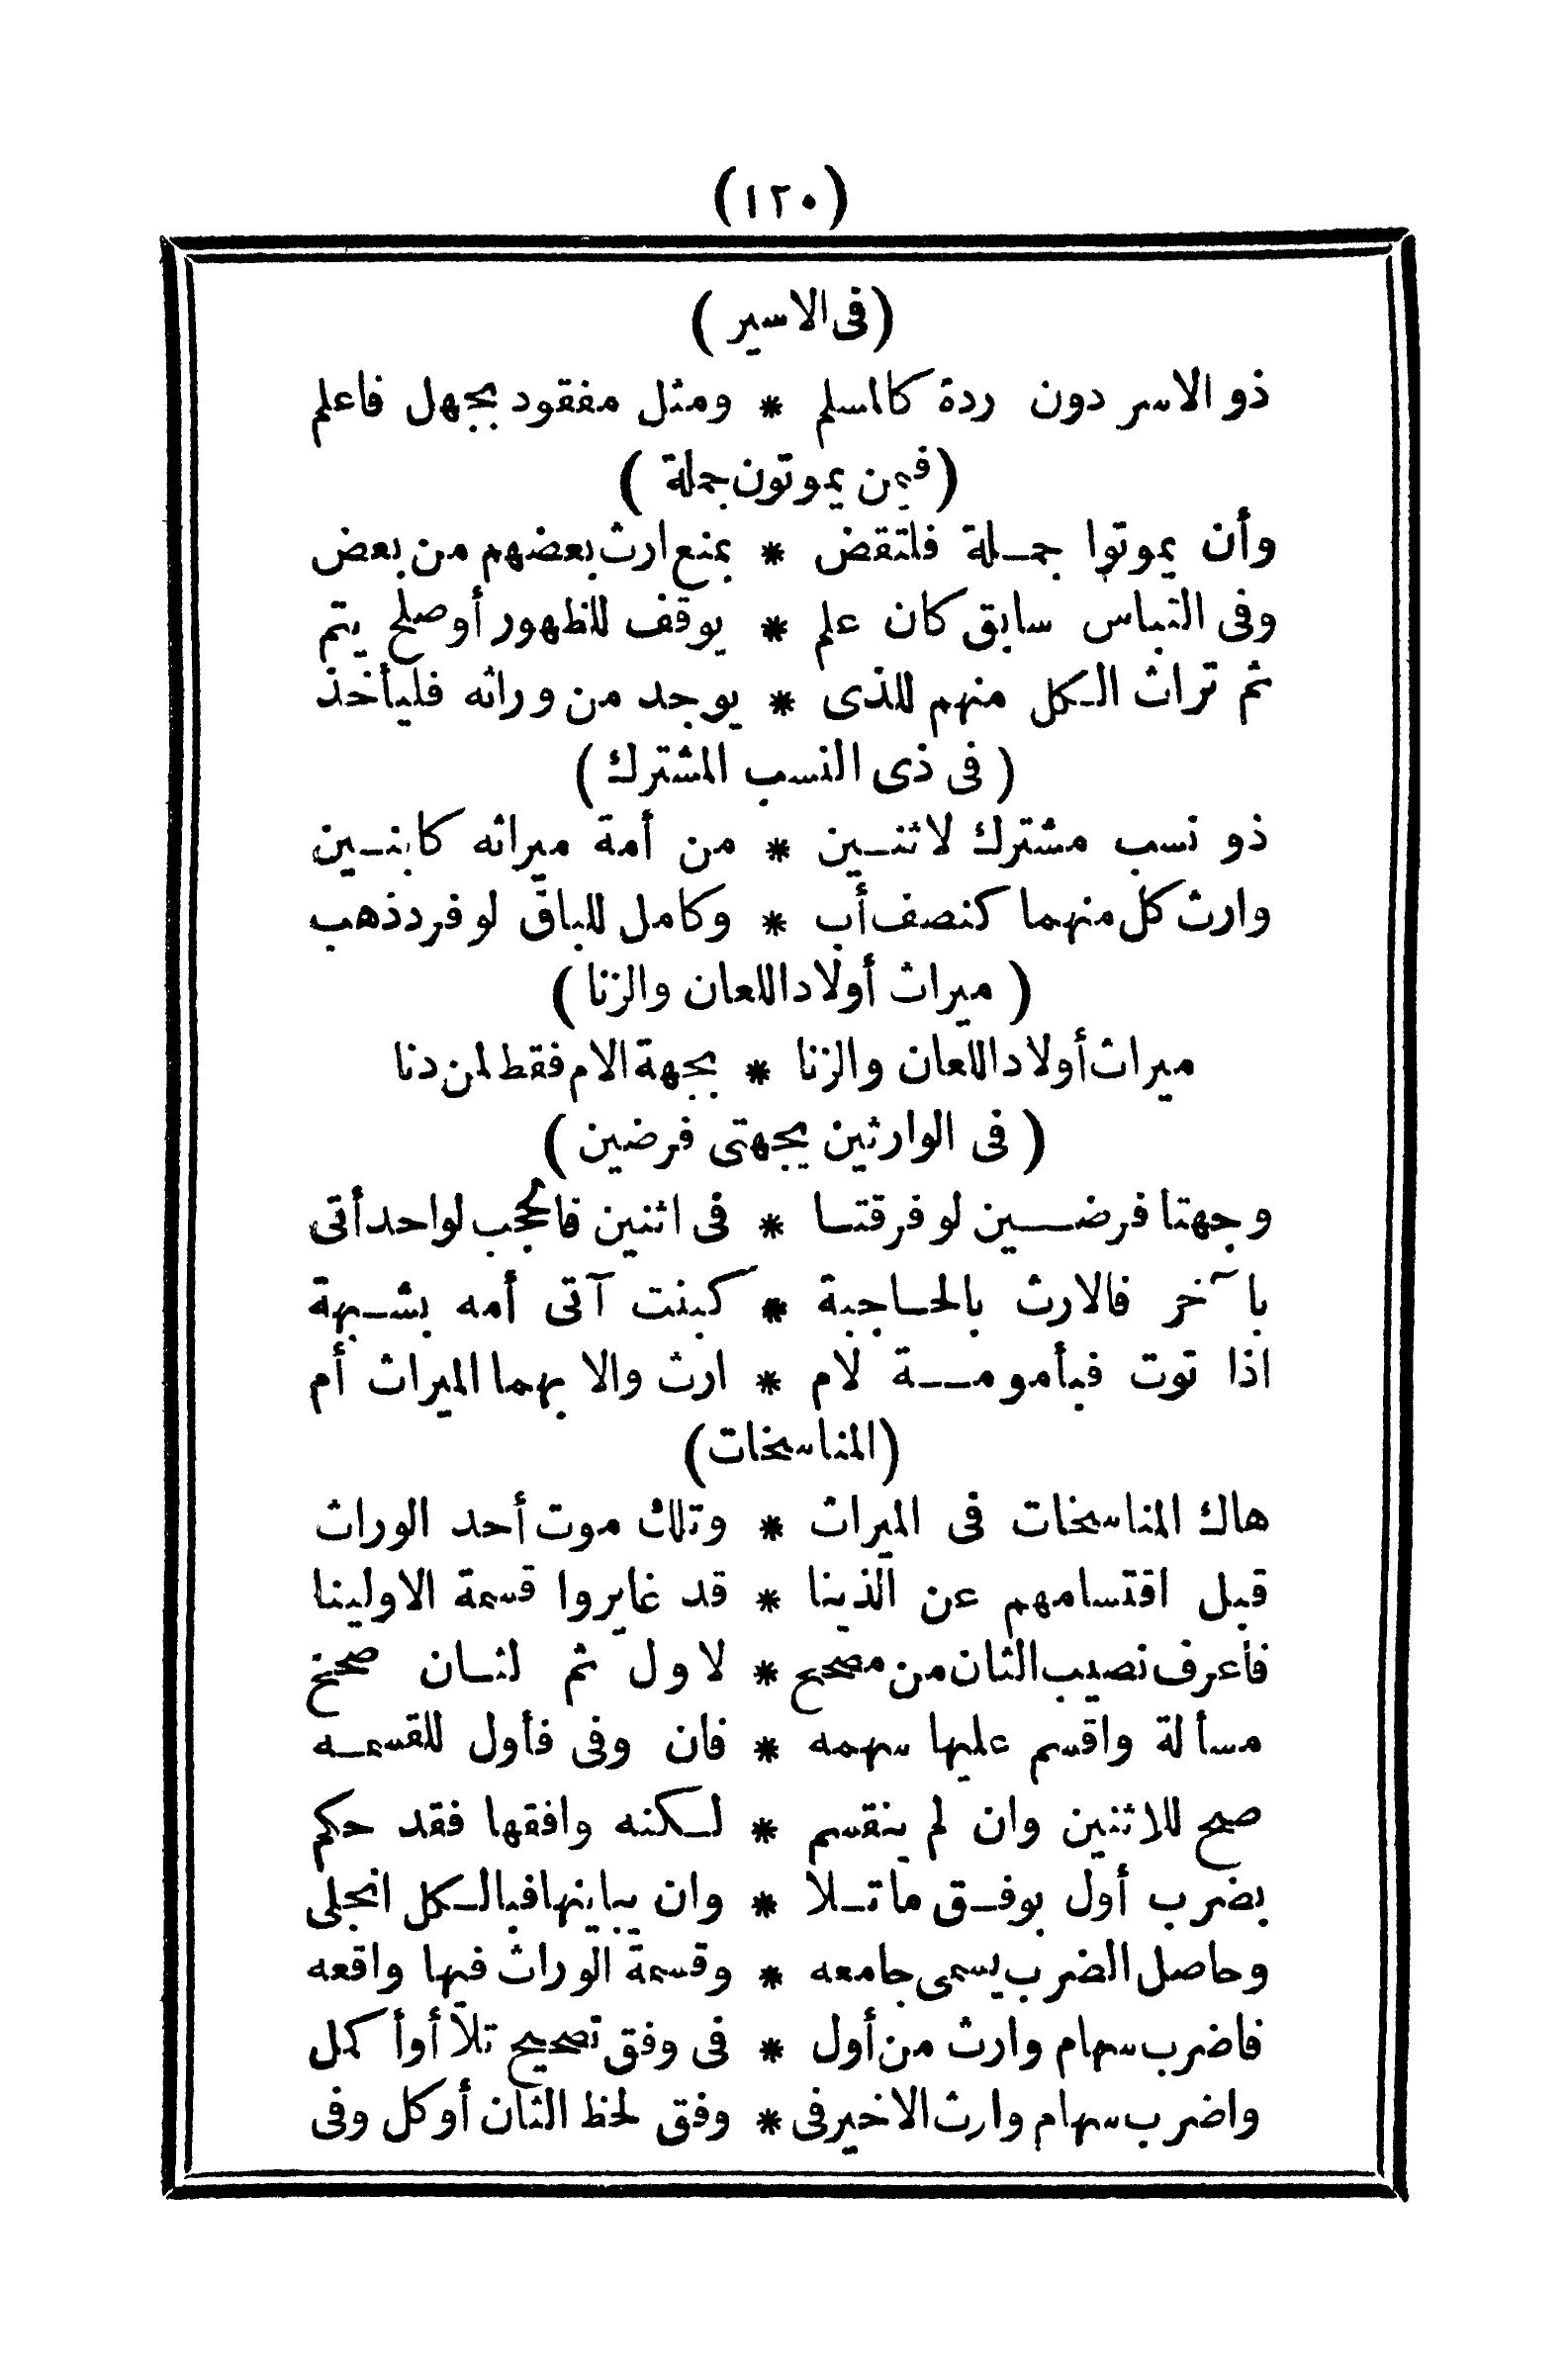 (١٢٠)
(فى الاسير)
ذو الاسر دون ردة كالمسلم * ومثل مفقود بجهل فاعلم
(فيمن يموتون جملة)
وأن يموتوا جمـلة فلتقض * بمنع ارث بعضهم من بعض
وفى التباس سابق كان علم * يوقف للظهور أو صلح يتم
ثم تراث الـكل منهم للذى * يوجد من وراثه فليأخذ
(فى ذى النسب المشترك)
ذو نسب مشترك لاثنـين * من أمة ميراثه كابنـين
وارث كل منهما كنصف أب * وكامل للباق لو فرد ذهب
(ميراث أولاد اللعان والزنا)
ميراث أولاد اللعان والزنا * بجهة الام فقط لمن دنا
(فى الوارثين بجهتى فرضين)
وجهتا فرضـــين لو فرقتـا * فى اثنين فالحجب لواحد أتى
بآخر فالارث بالحـاجبة * كبنت آتى أمه بشـبهة
اذا توت فبأمومــة لام * ارث والا بهما الميراث أم
(المناسخات)
هاك المناسخات فى الميراث * وتلك موت أحد الوراث
قبل اقتسامهم عن الذينا * قد غايروا قسمة الاولينا
فاعرف نصيب الثان من مصحح * لاول ثم لثـان صحح
مسألة واقسم عليها سهمه * فان وفى فأول للقسمـه
صح للاثنين وان لم ينقسم * لـكنه وافقها فقد حكم
بضرب أول بوفـق ما تـلا * وان يباينها فبالـكل انجلى
وحاصل الضرب يسمى جامعه * وقسمة الوراث فيها واقعه
فاضرب سهام وارث من أول * فى وفق تصحيح تلا أو أكمل
واضرب سهام وارث الاخير فى * وفق لحظ الثان أو كل وفى